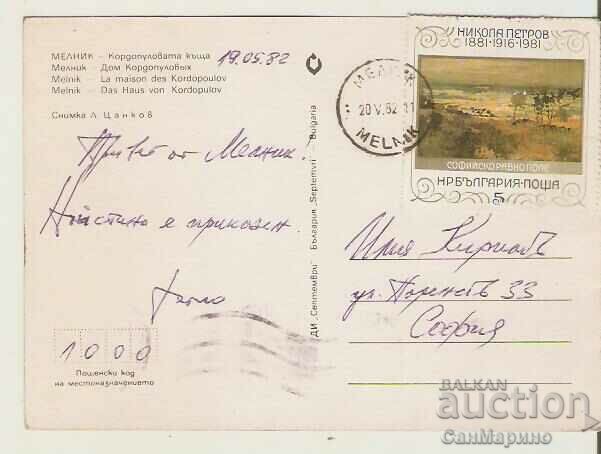 МЕЛНИК – Кордопуловата къща
Мелник – Дом Кордопуловых
Melnik – La maison des Kordopoulov
Melnik – Das Haus von Kordopulov
19.05.82
Снимка Л. Цанков
Привет от Мелник.
Наистина е приказен.
1000
Пощенски код
на местоназначението
ДИ „Септември" България „Septemvri" Bulgaria
МЕЛНИК
20.V.82.11
MELNIK
НИКОЛА ПЕТРОВ
1881·1916·1981
СОФИЙСКО РАВНО ПОЛЕ
НР БЪЛГАРИЯ·ПОЩА
5
Илия
ул. 33
София
BALKAN
auction
СанМарино